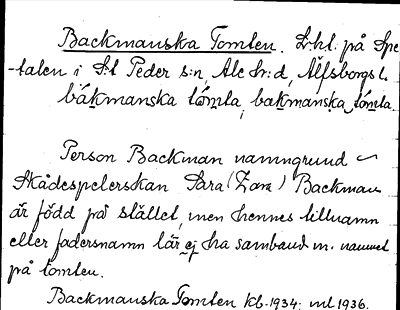 Backmanska Tomten. Lht. på Spe-
-talen i S:t Peder s:n, Ale hr:d, Älfsborgs l.
båkmanska tómta, bakmanska tómta.
Person Backman namngrund
Skådespelerskan Sara (Zara) Backman
är född på stället, men hennes tillnamn
eller fadersnamn lär ej ha samband m. namnet
på tomten.
Backmanska Tomten kb. 1934; ml 1936.